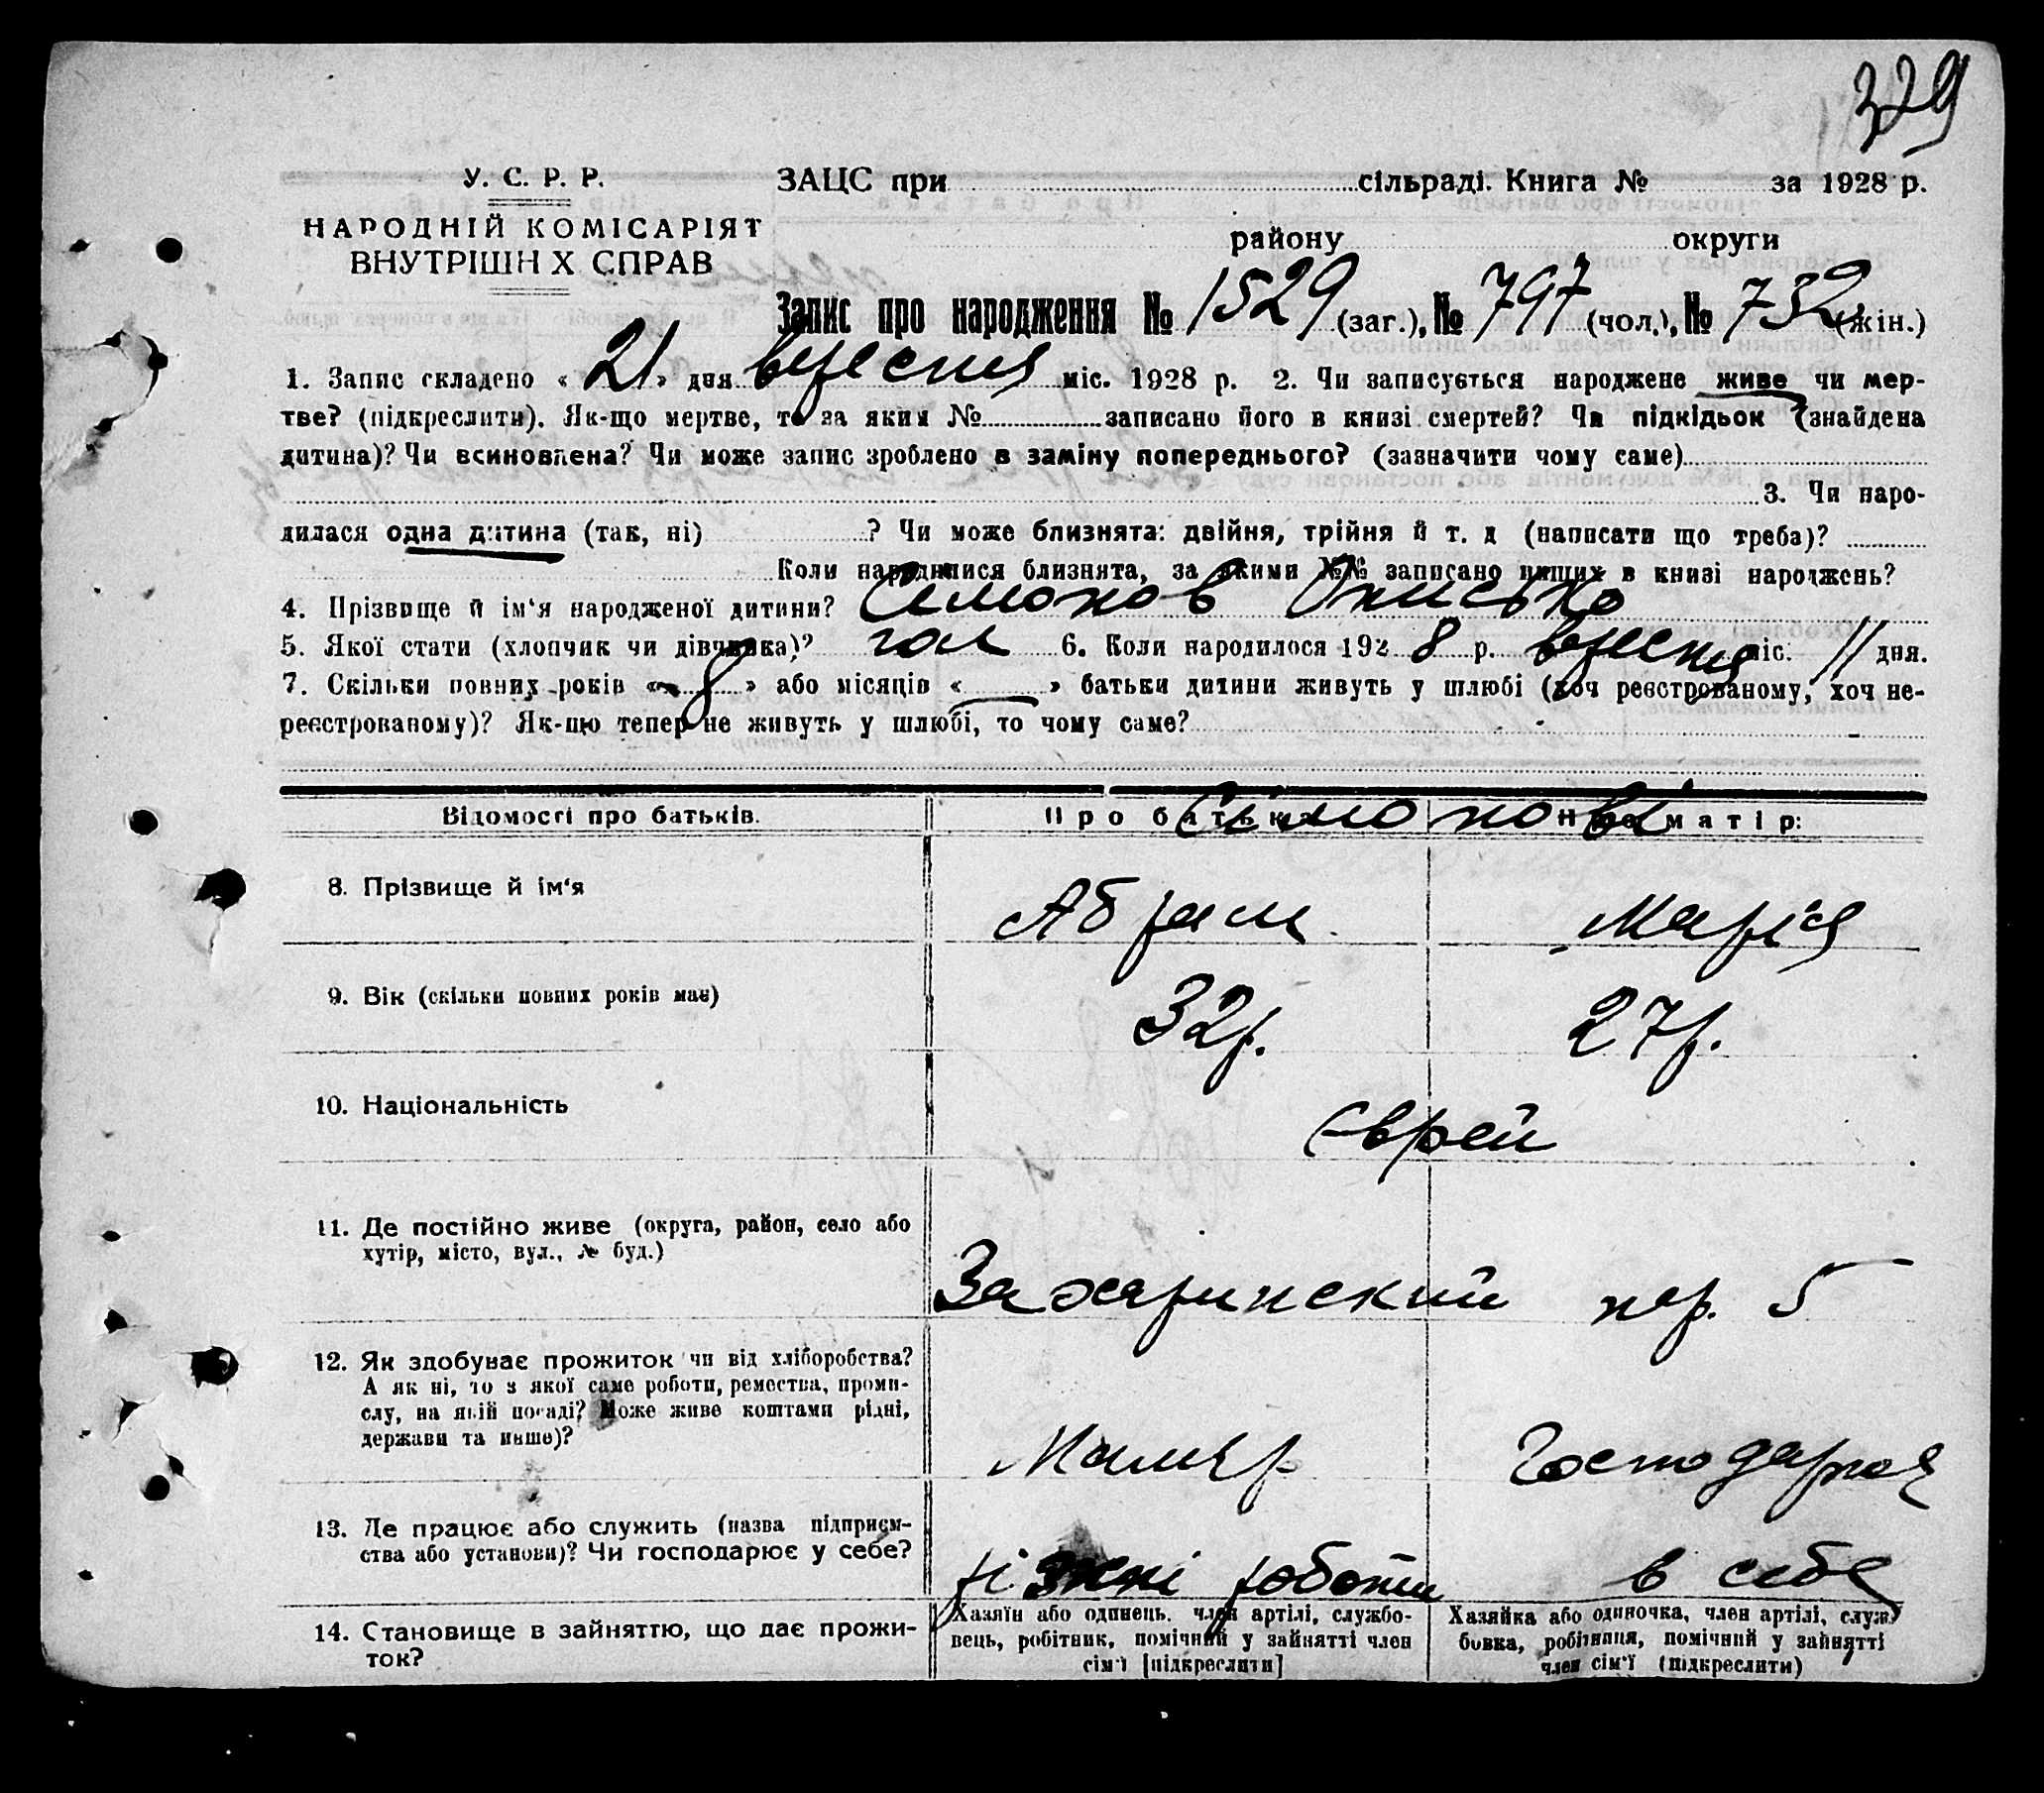 329
У. С. Р. Р.
НАРОДНІЙ КОМІСАРІЯТ
ВНУТРІШН Х СПРАВ
ЗАЦС при сільраді. Книга № за 1928 р.
району округи
Запис про народження № 1529 (заг.), № 797 (чол.), № 732 (жін.)
1. Запис складено « 21 » дня вересня міс. 1928 р. 2. Чи записується народжене живе чи мер-
тве? (підкреслити). Як-що мертве, то за яким № записано його в книзі смертей? Чи підкідьок (знайдена
дитина)? Чи всиновлена? Чи може запис зроблено в заміну попереднього? (зазначити чому саме)
3. Чи наро-
дилася одна дитина (так, ні) ? Чи може близнята: двійня, трійня й т. д (написати що треба)?
Коли народилися близнята, за якими №№ записано инших в книзі народжень?
4. Прізвище й ім‘я народженої дитини? Сімонов
5. Якої статі (хлопчик чи дівчинка)? чол 6. Коли народилося 192 8 р. вересня міс. 11 дня.
7. Скільки повних років « 8 » або місяців « — » батьки дитини живуть у шлюбі (хоч реєстрованому, хоч не-
реєстрованому)? Як-що тепер не живуть у шлюбі, то чому саме?
Відомості про батьків. Про батька Про матір:
Сімонові
8. Прізвище й ім‘я Абрам Марія
9. Вік (скільки повних років має) 32 р. 27 р.
10. Національність Єврей
11. Де постійно живе (округа, район, село або
хутір, місто, вул., № буд.)
Захаринский пер. 5
12. Як здобуває прожиток чи від хліборобства?
А як ні, то з якої саме роботи, ремества, проми-
слу, на якій посаді? Може живе коштами рідні,
держави та инше)?
Маляр Господарная
13. Де працює або служить (назва підприєм-
ства або установи)? Чи господарює у себе?
різкні роботи в себе
14. Становище в зайняттю, що дає прожи-
ток?
Хазяїн або одинець, член артілі, службо-
вець, робітник, помічний у зайнятті член
сім‘ї [підкреслити]
Хазяйка або одиночка, член артілі, служ-
бовка, робітниця, помічний у зайнятті
член сім‘ї (підкреслити)